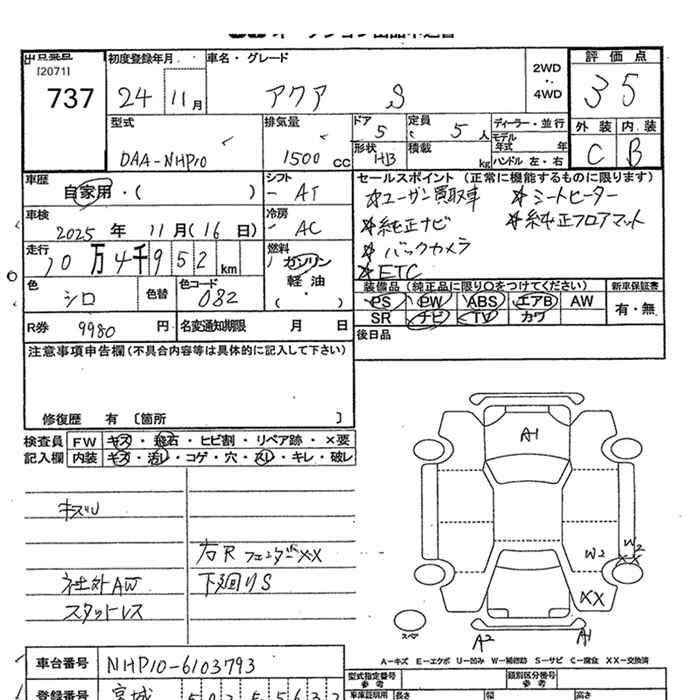 オークション出品申込書
出品番号
[2071]
737
初度登録年月
24 11月
車名・グレード
アクア S
2WD
・・
4WD
評価点
3 5
外装 内装
C B
型式
DAA-NHP10
排気量
1500 CC
ドア 5
形状 HB
定員 5 人
積載 kg
ディーラー・並行
モデル年式 年
ハンドル 左・右
車歴
自家用・( )
シフト
AT
車検
2025 年 11 月 (16 日)
冷房
AC
走行
10万4千952km
燃料
ガソリン
軽油
・
( )
色
シロ
色替
色コード
082
R券 9980 円
名変通知期限 月 日
セールスポイント(正常に機能するものに限ります)
☆ユーザー買取車 ☆シートヒーター
☆純正ナビ ☆純正フロアマット
☆バックカメラ
☆ETC
装備品(純正品に限り○をつけてください)
PS PW ABS エアB AW
SR ナビ TV カワ
新車保証書
有・無
後日品
注意事項申告欄(不具合内容等は具体的に記入して下さい)
修復歴 有 〔箇所 〕
検査員記入欄
FW キズ・飛石・ヒビ割・リペア跡・×要
内装 キズ・汚レ・コゲ・穴・スレ・キレ・破レ
キズU
右R フェンダーXX
社外AW 下廻りS
スタットレス
A1
W2
W2
XX
XX
スペア
A2
A1
A-キズ E-エクボ U-凹み W-補修跡 S-サビ C-腐食 XX-交換済
車台番号 NHP10-6103793
登録番号 宮城 502
型式指定番号
参考
類別区分番号
参考
車庫証明用 長さ 幅 高さ